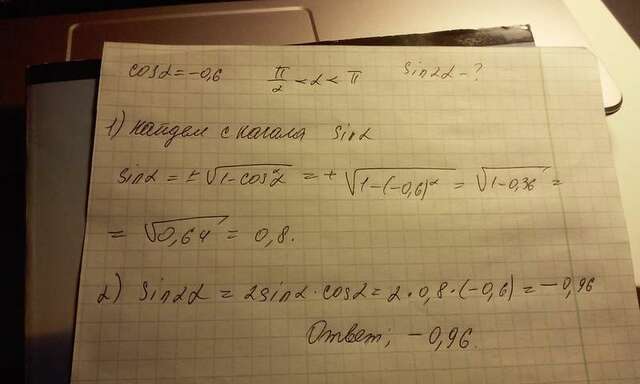 cosα = -0,6 π/2 < α < π sin2α - ?
1) найдем с начала sinα
sinα = ±√(1-cos²α) = +√(1-(-0,6)²) = √(1-0,36) =
= √0,64 = 0,8.
2) sin2α = 2sinα·cosα = 2·0,8·(-0,6) = -0,96
Ответ: -0,96.